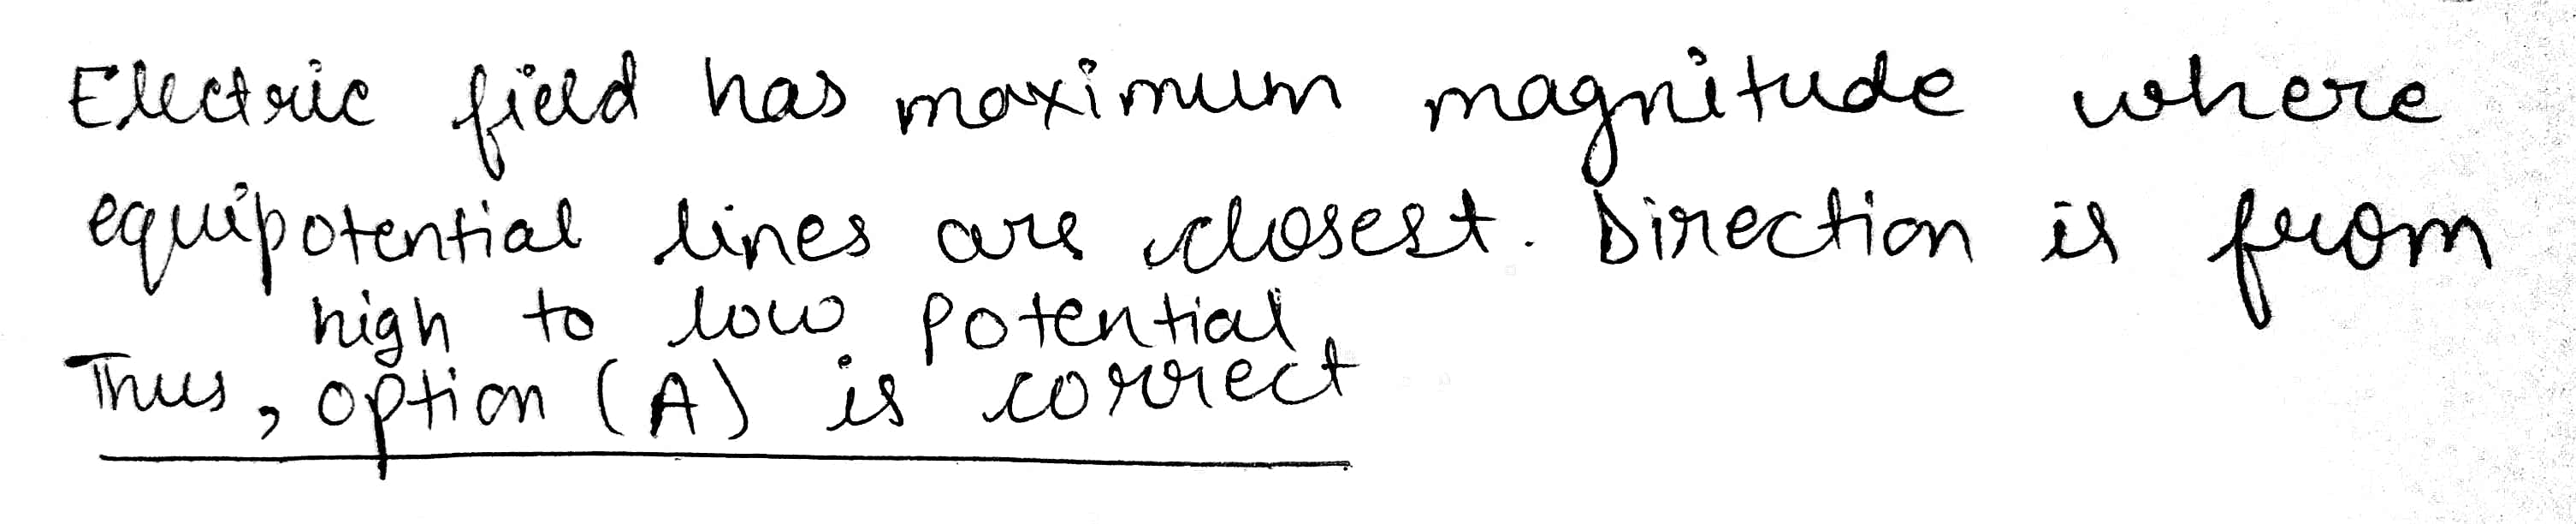 Electric field has maximum magnitude where
equipotential lines are closest. Direction is from
high to low potential.
Thus, option (A) is correct